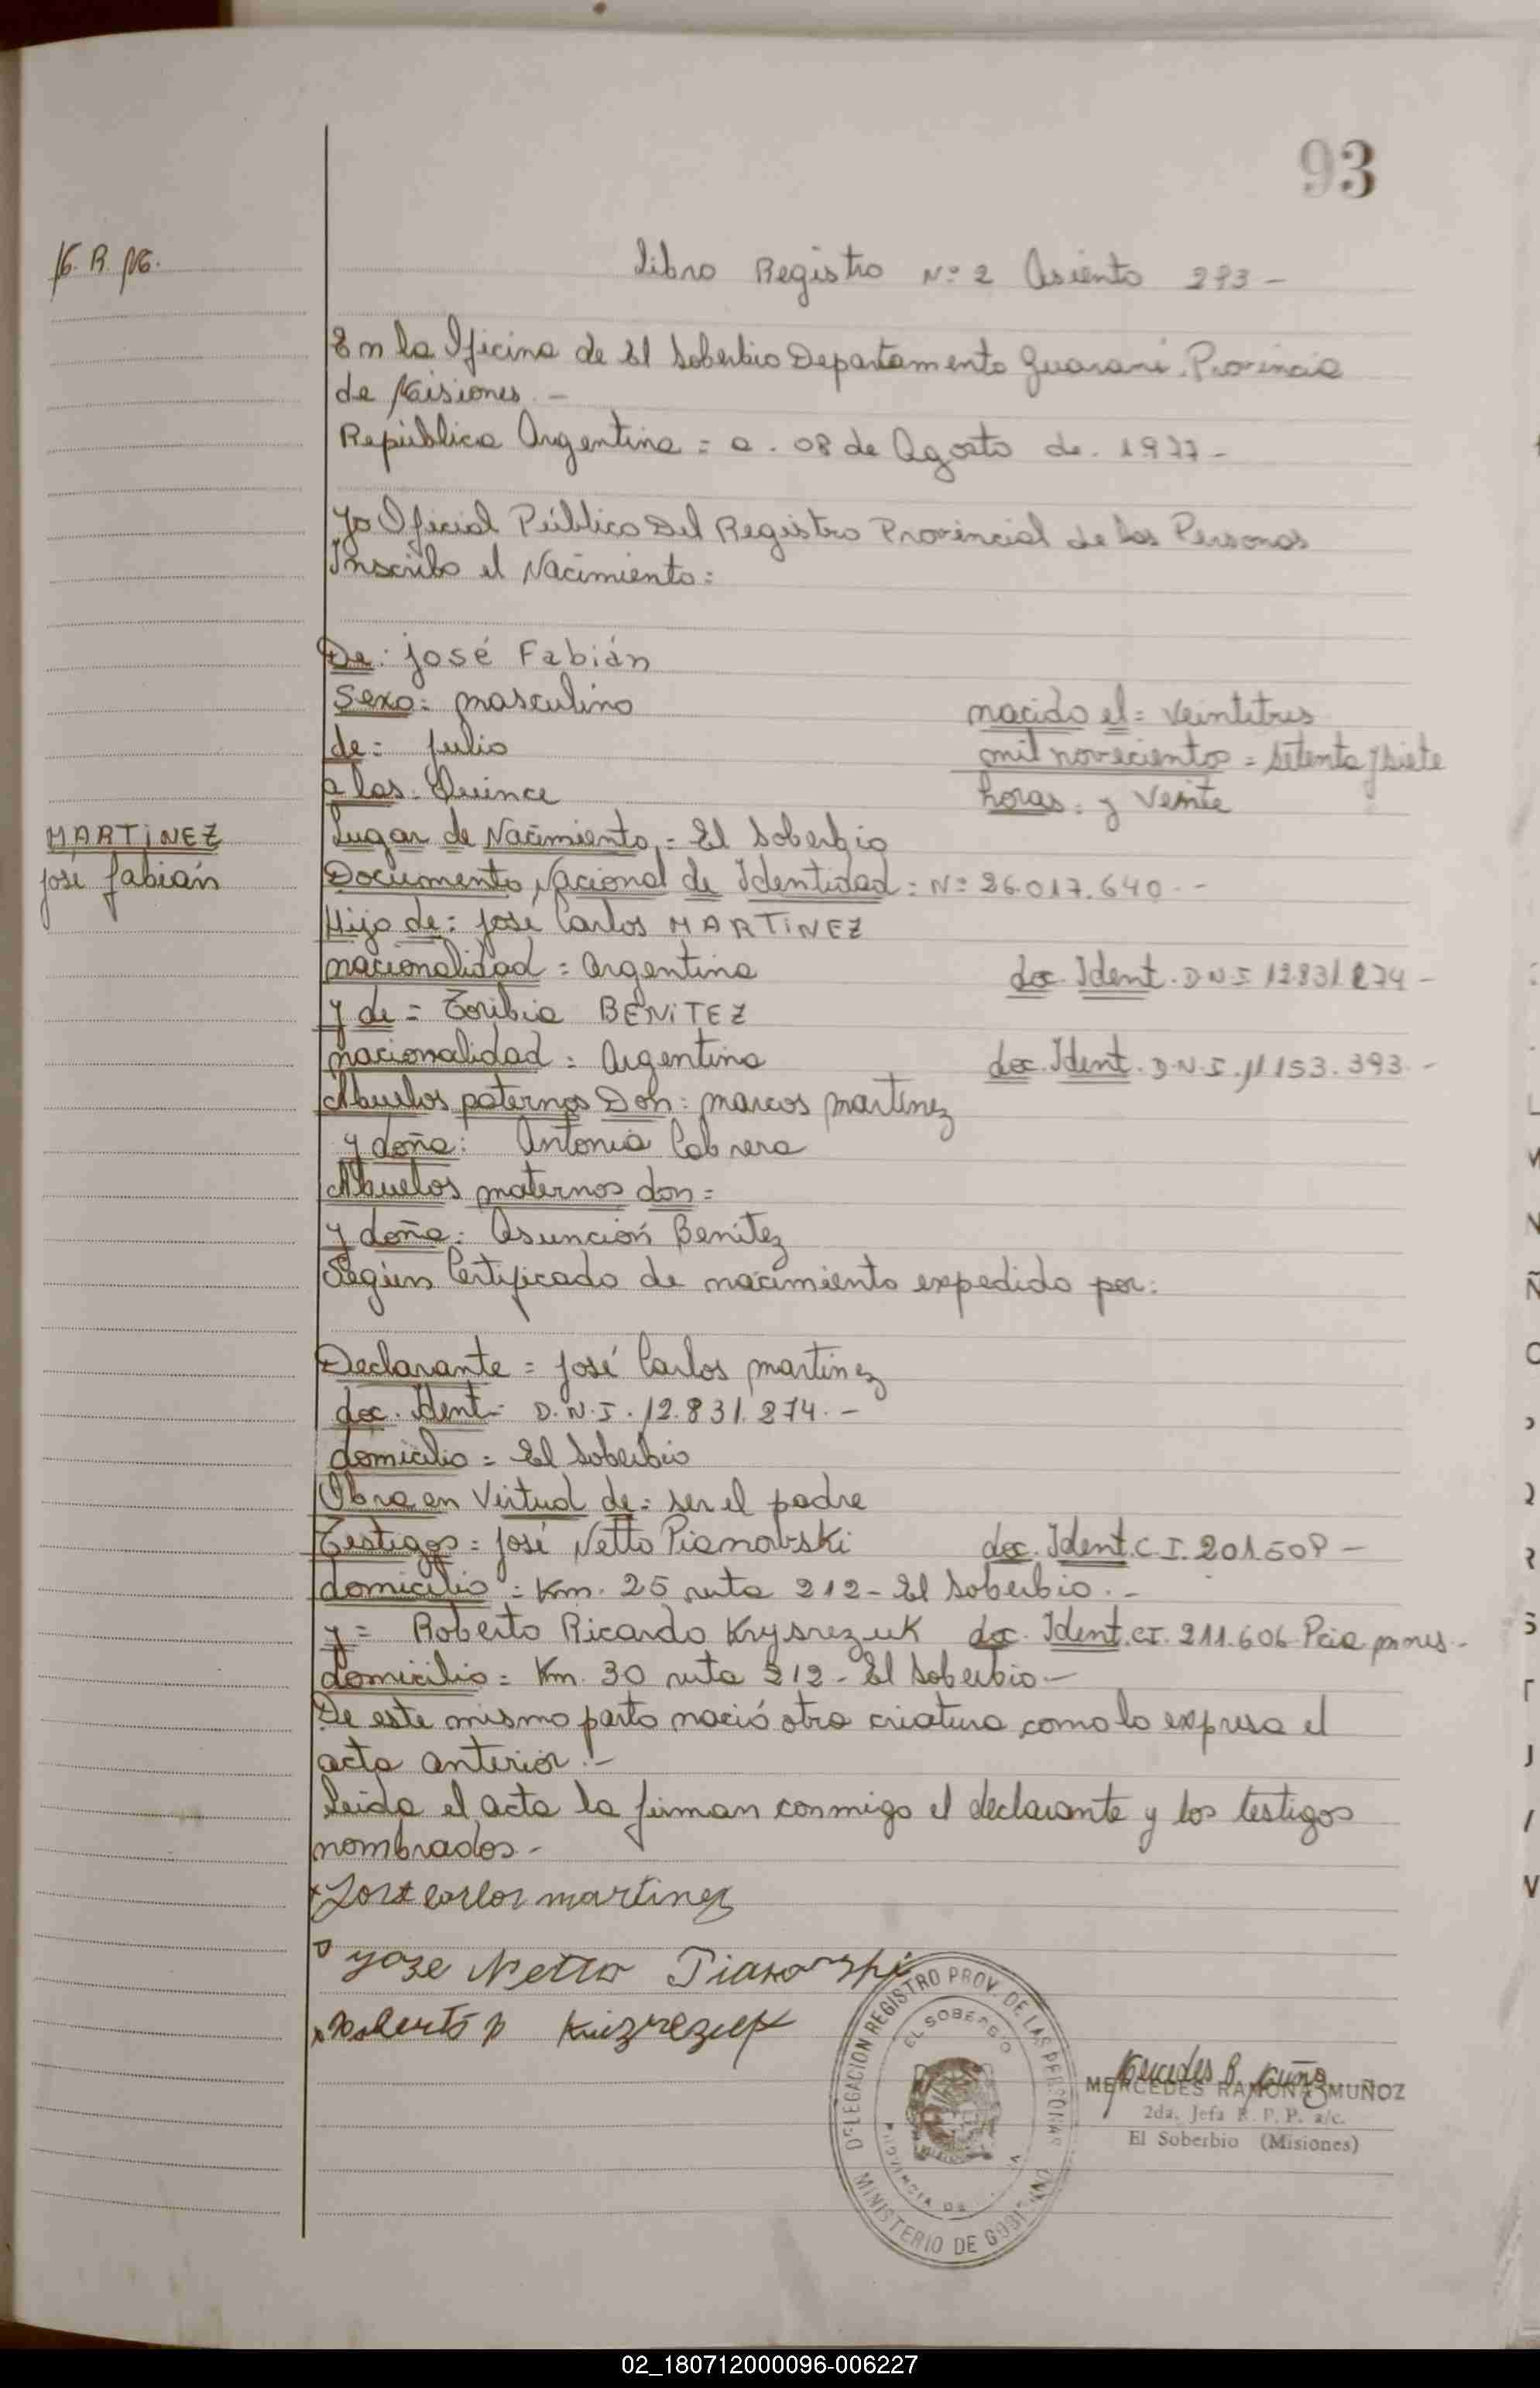 93
Libro Registro Nº 2 Asiento 293 -
En la Oficina de El Soberbio Departamento Guaraní. Provincia
de Misiones. -
República Argentina = a. 08 de Agosto de. 1977 -
Yo Oficial Público Del Registro Provincial de las Personas
Inscribo el Nacimiento:
De: José Fabián
Sexo: masculino nacido el = Veintitres
de = Julio mil novecientos = setenta y siete
a las: Quince horas: y Veinte
Lugar de Nacimiento = El Soberbio
MARTINEZ
José fabián
Documento Nacional de Identidad: Nº 26.017.640 - -
Hijo de: José Carlos MARTINEZ
nacionalidad = argentina doc. Ident. D.N.I 12.831.274 -
y de = Toribia BENITEZ
nacionalidad = argentina doc. Ident. D.N.I. 11 153.393. -
Abuelos paternos Don: marcos martinez
y doña: Antonia Cabrera
Abuelos maternos don =
y doña: Asunción Benitez
Según Certificado de nacimiento expedido por:
Declarante = José Carlos martinez
doc. Ident - D.N.I. 12.831.274. -
domicilio = El Soberbio
Obra en Virtud de: ser el padre
Testigos = José Netto Pianovski doc. Ident. C.I. 201.50
domicilio = Km. 25 ruta 212 - El Soberbio. -
y = Roberto Ricardo Krysrezuk doc. Ident. CI. 211.606 Pcia mnes. -
domicilio = Km. 30 ruta 212 - El Soberbio -
De este mismo parto nació otra criatura como lo expresa el
acta anterior. -
Leida el acta la firman conmigo el declarante y los testigos
nombrados. -
Jose carlos martinez
Yoze Netto Pianovski
Roberto R
DELEGACION REGISTRO PROV. DE LAS PERSONAS
EL SOBERBIO
PROVINCIA DE
MINISTERIO DE GOBIERNO
Mercedes R. Muñoz
MERCEDES RAMONA MUÑOZ
2da. Jefa R. P. P. a/c.
El Soberbio (Misiones)
02_180712000096-006227